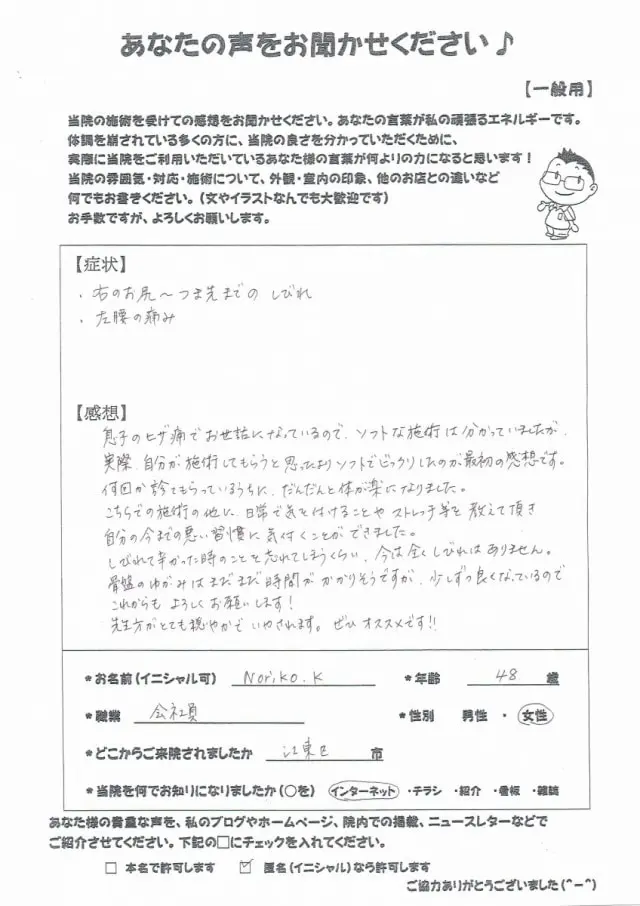 あなたの声をお聞かせください♪
【一般用】
当院の施術を受けての感想をお聞かせください。あなたの言葉が私の頑張るエネルギーです。
体調を崩されている多くの方に、当院の良さを分かっていただくために、
実際に当院をご利用いただいているあなた様の言葉が何よりの力になると思います！
当院の雰囲気・対応・施術について、外観・室内の印象、他のお店との違いなど
何でもお書きください。（文やイラストなんでも大歓迎です）
お手数ですが、よろしくお願いします。
【症状】
・右のお尻〜つま先までの しびれ
・左腰の痛み
【感想】
息子のヒザ痛でお世話になっているので、ソフトな施術は分かっていましたが、
実際、自分が施術してもらうと思ったよりソフトでビックリしたのが最初の感想です。
何回か診てもらっているうちに、だんだんと体が楽になりました。
こちらでの施術の他に、日常で気を付けることや ストレッチ等を教えて頂き
自分の今までの悪い習慣に気付くことができました。
しびれて辛かった時のことを忘れてしまうくらい、今は全くしびれはありません。
骨盤のゆがみはまだまだ時間がかかりそうですが、少しずつ良くなっているので
これからも よろしくお願いします！
先生方がとても穏やかで いやされます。ぜひ オススメです!!
*お名前（イニシャル可） Noriko.K *年齢 48 歳
*職業 会社員 *性別 男性 ・ 女性
*どこからご来院されましたか 江東区 市
*当院を何でお知りになりましたか（○を） インターネット ・チラシ ・紹介 ・看板 ・雑誌
あなた様の貴重な声を、私のブログやホームページ、院内での掲載、ニュースレターなどで
ご紹介させてください。下記の□にチェックを入れてください。
□ 本名で許可します ☑ 匿名（イニシャル）なら許可します
ご協力ありがとうございました(^-^)